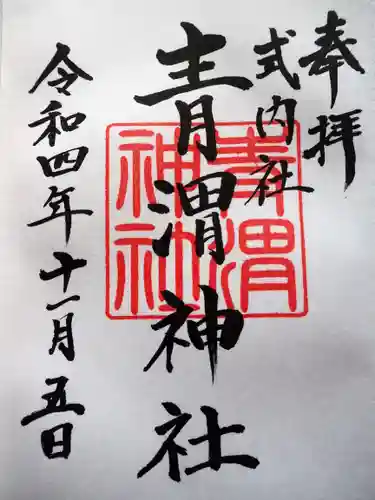 奉拝
式内社
青渭神社
令和四年十一月五日
青渭
神社